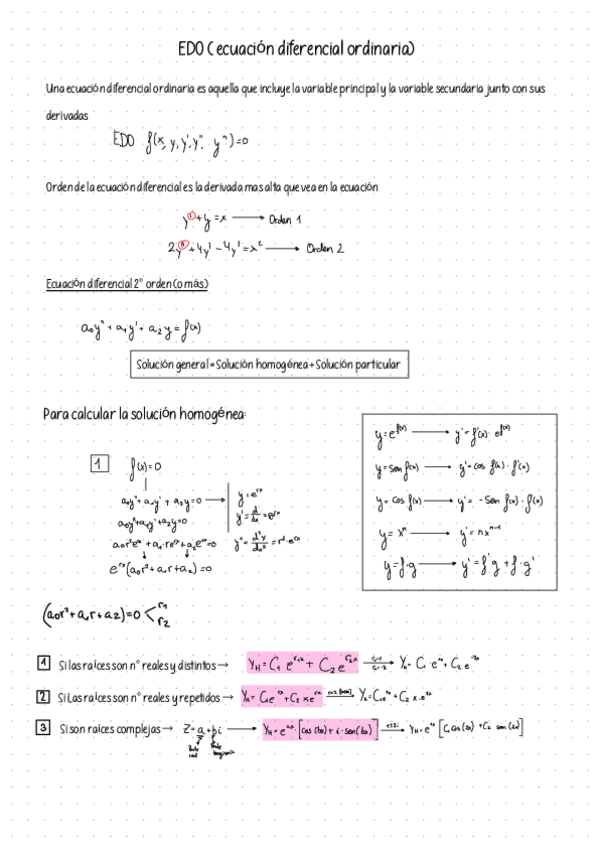 EDO (ecuación diferencial ordinaria)
Una ecuación diferencial ordinaria es aquella que incluye la variable principal y la variable secundaria junto con sus
derivadas
EDO f(x, y, y', y'', yⁿ)=0
Orden de la ecuación diferencial es la derivada mas alta que vea en la ecuación
y'+y=x → Orden 1
2y''+4y'-4y'=x² → Orden 2
Ecuación diferencial 2º orden (o más)
a₀y''+a₁y'+a₂y=f(x)
Solución general = Solución homogénea + Solución particular
Para calcular la solución homogénea:
1 f(x)=0
a₀y''+a₁y'+a₂y=0 →
a₀y''+a₁y'+a₂y=0
a₀r²eʳˣ+a₁·reʳˣ+a₂eʳˣ=0
eʳˣ(a₀r²+a₁r+a₂)=0
y=eʳˣ
y=e^f(x) → y'=f'(x)·e^f(x)
y=sen f(x) → y'=cos f(x)·f'(x)
y=cos f(x) → y'=-sen f(x)·f'(x)
y=xⁿ → y'=nxⁿ⁻¹
y=f·g → y'=f'g+f·g'
(a₀r²+a₁r+a₂)=0 < r₁
r₂
1 Si las raíces son nº reales y distintos → Y_H=C₁e^r₁x+C₂e^r₂x
2 Si Las raíces son nº reales y repetidos →
3 Si son raices complejas → Z=a+bi →